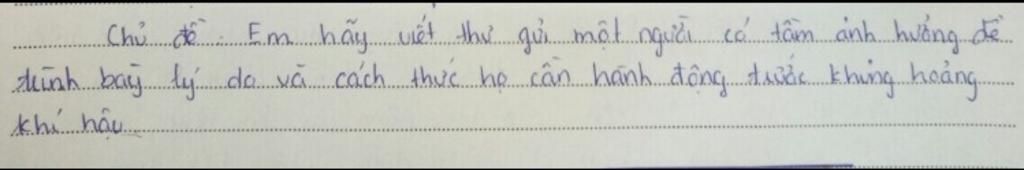 Chủ đề: Em hãy viết thư gửi một người có tầm ảnh hưởng để
trình bày lý do và cách thức họ cần hành động trước khủng hoảng
khí hậu